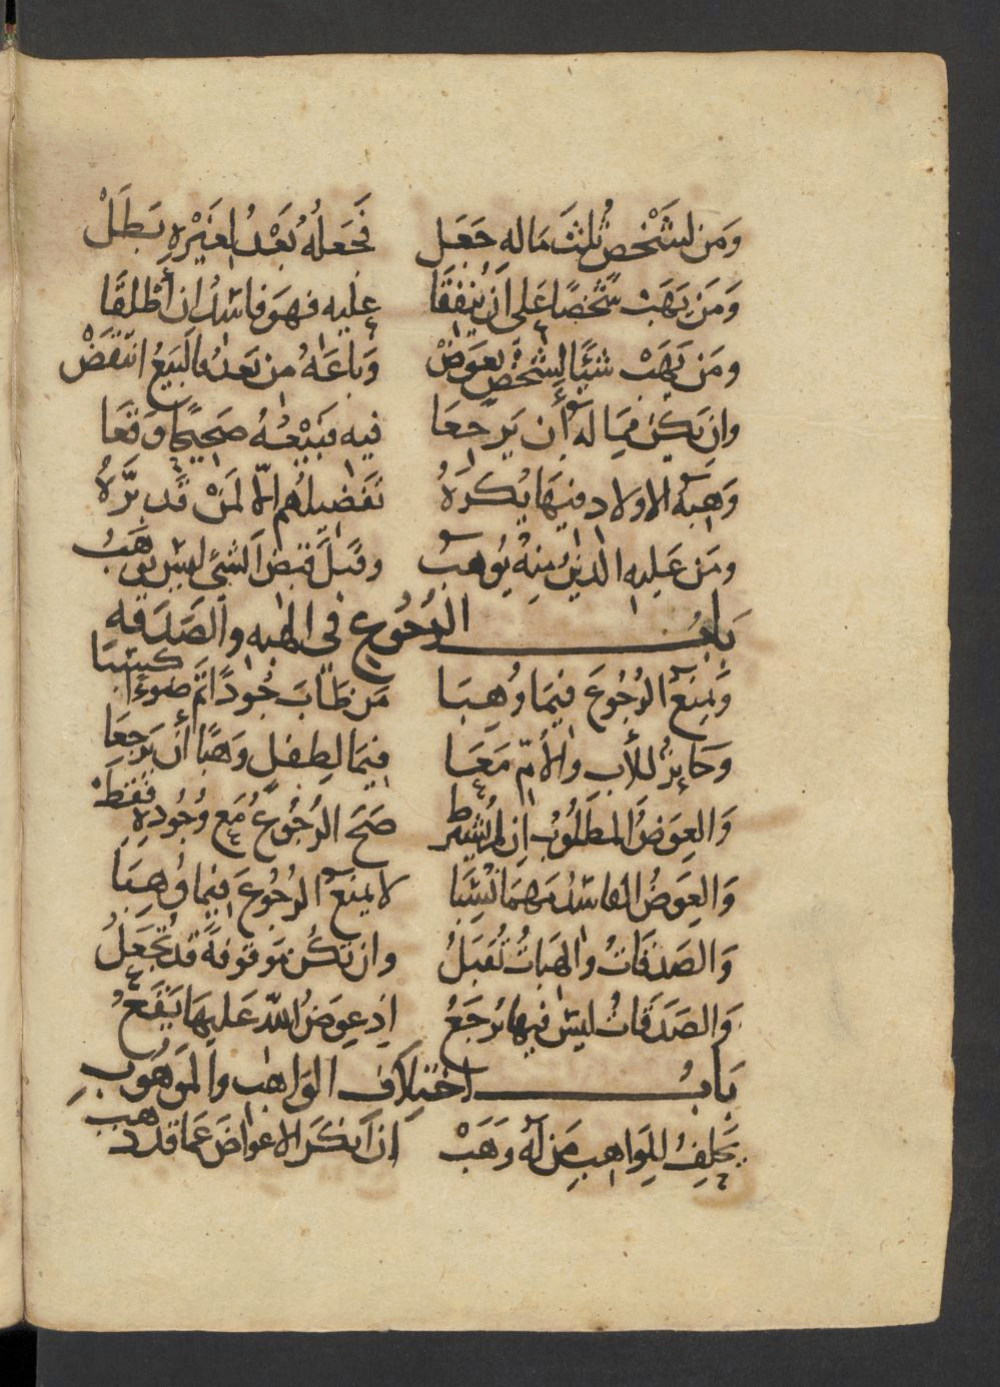 وَمَن لشَخْصٍ ثُلثَ مَا له جَعَل فجَعلُهُ بَعْدُ لغَيْرِهِ بَطَلْ
وَمَن يَهَبْ شَخْصًا عَلى اَن يُنْفِقَا عليه فهوَ فاسدٌ ان اَطْلَقَا
ومَن يَهَبْ شيًا لِشَخْصٍ بعِوَضْ وَبَاعَهُ من بَعدُ فالبَيعُ انتَقَضْ
وان يكن ممَا له أن يَرجعَا فيه فبَيْعُهُ صَحِيحًا وَقَعَا
وَهبَة الاولاد فيهَا يُكرَهُ تَفضِيلُهُم الّا لمَنْ قد بَرَّهُ
ومَن عَليه الدينُ مِنهُ يُوهَب وقبلَ قبضِ الشئ ليسَ يُوهَبُ
بَابُ الرُجُوعِ فى الهبه والصَدَقه
وَيمنَعُ الرُجُوعَ فيمَا وُهِبَا مَن طَابَ جُودًا ثمَّ ضوءًا كسَبَا
وَجَايزٌ للأَبِ والأُمّ مَعَا فيمَا لطِفلٍ وَهَبَا أن يَرجعَا
وَالعِوَضُ المطلُوبُ ان لم يُشترط صَحَ الرُجُوعُ مَع وُجُودِهِ فَقَطْ
وَالعِوَضُ الفاسدُ مَهمَا نُسِبَا لا يمنَعُ الرُجُوعَ فيما وُهِبَا
وَالصَدَقاتُ والهبَاتُ تُقبَلُ وان تكُن مَوقوفةً قد تُجعَلُ
وَالصَدَقاتُ ليسَ فيها يُرجَعُ اذ عِوَضُ اللّه عَليهَا يَقَعُ
بَابُ اختِلَاف الوَاهِب والمَوهُوبِ
يَحلِفُ للوَاهِب مَن لَهُ وَهَبْ ان اَنكَرَ الاعواضَ عَمَا قد وهب